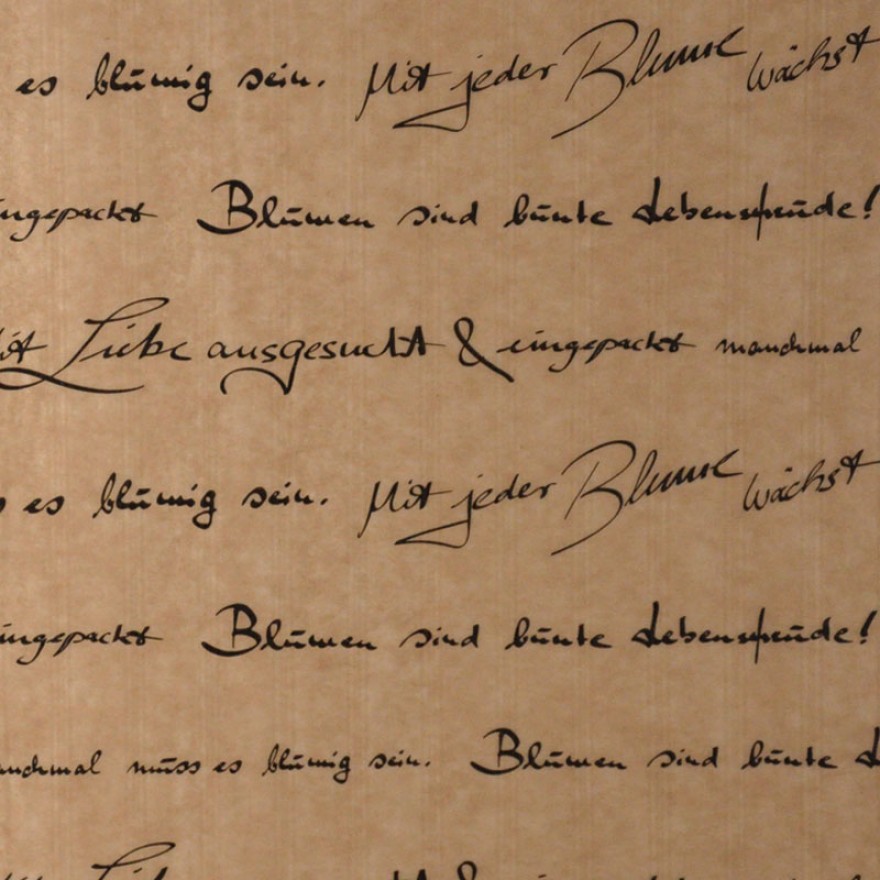 es blumig sein. Mit jeder Blume wächst
ingepackt Blumen sind bunte Lebensfreude!
Mit Liebe ausgesucht & eingepackt manchmal
es blumig sein. Mit jeder Blume wächst
ingepackt Blumen sind bunte Lebensfreude!
manchmal muss es blumig sein. Blumen sind bunte